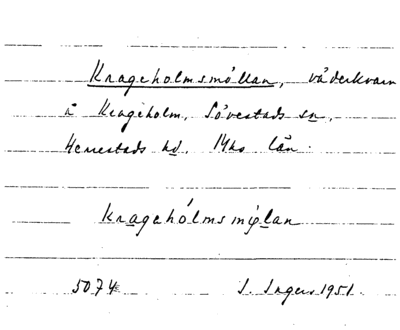 Krageholmsmöllan, väderkvarn
i Krageholm, Sövestads sn,
Herrestads hd. Mhs län.
Kragehólmsmöylan
5074 I. Ingers 1951.